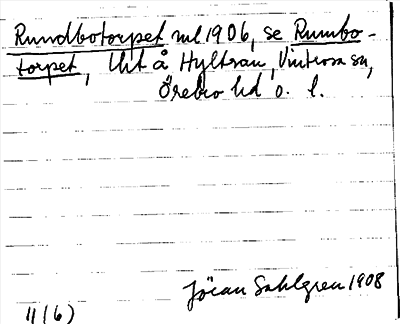 Rundbotorpet ml 1906, se Rumbo-
torpet, lht å Hyltran, Vintrosa sn,
Örebro hd o. l.
Jöran Sahlgren 1908
11 (6)